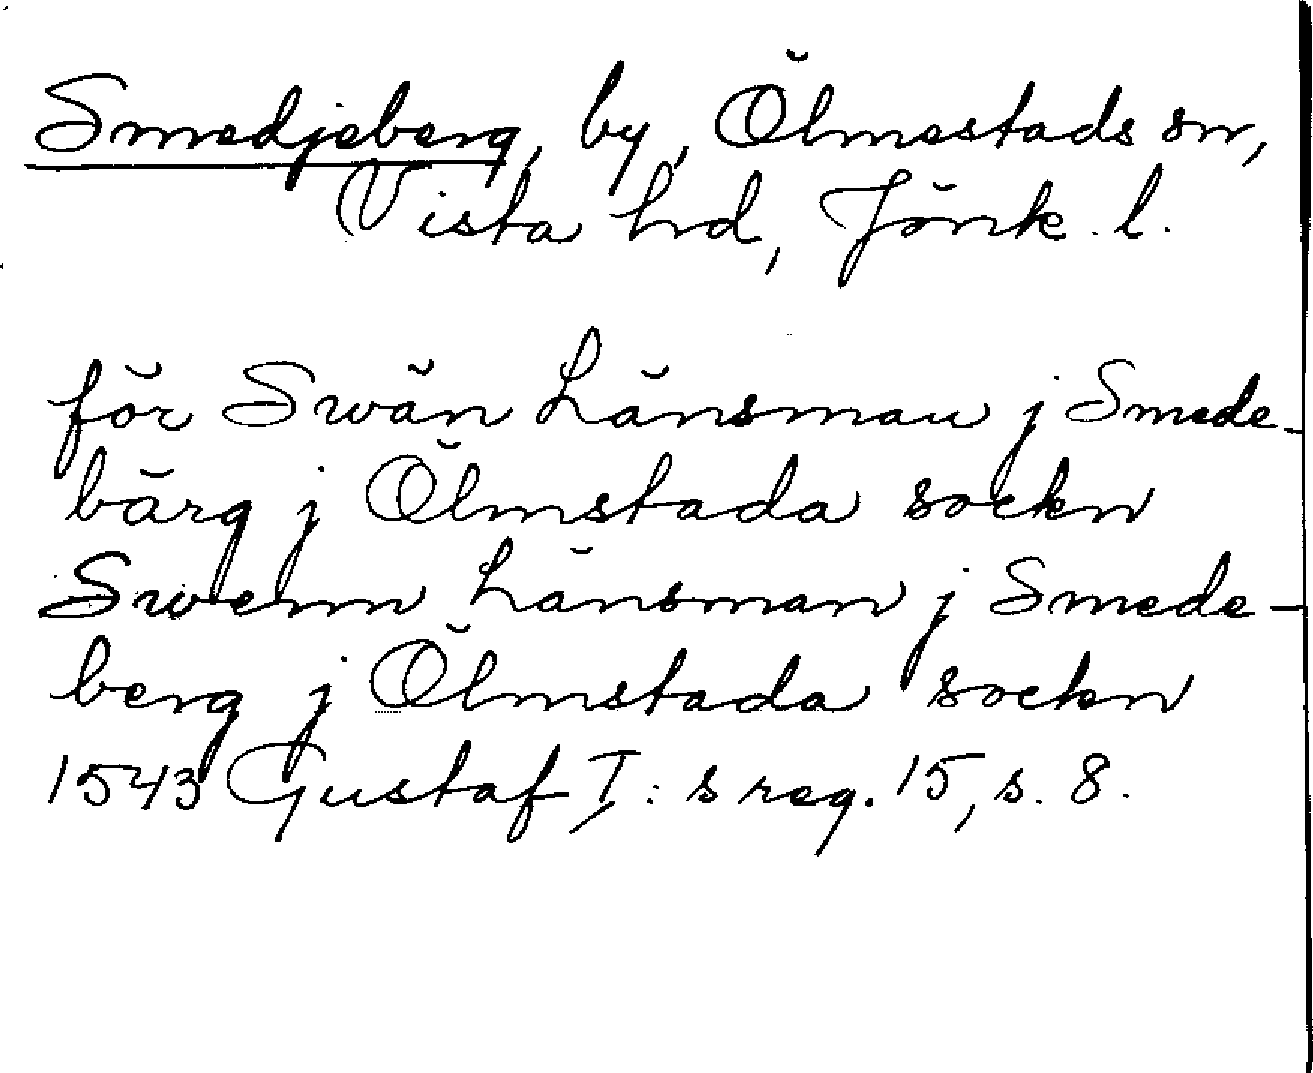 Smedjeberg, by, Ölmestads sn,
Vista hd, Jönk. l.
för Swän Länsman j Smede-
bärg j Ölmstada sockn
Swenn Länsman j Smede-
berg j Ölmstada sockn
1543 Gustaf I:s reg. 15, s. 8.